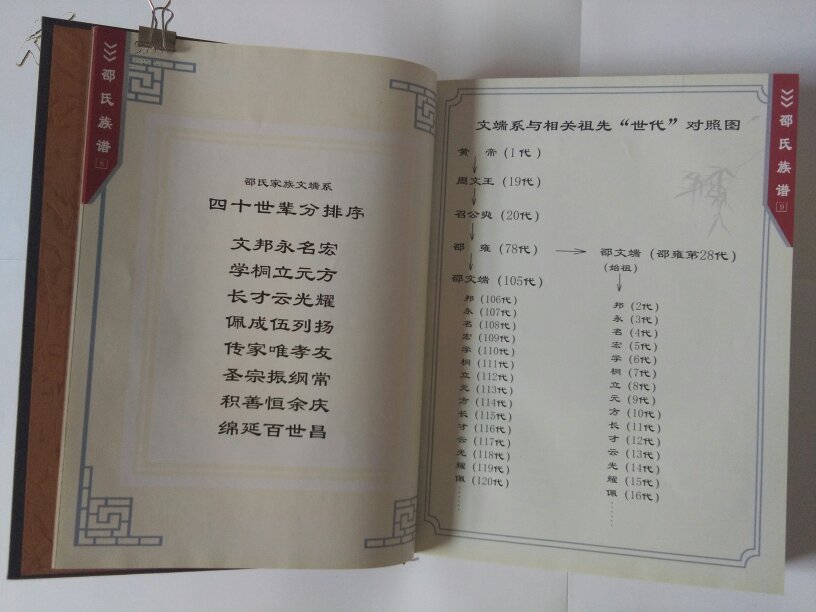 邵氏族谱
8
邵氏家族文端系
四十世辈分排序
文邦永名宏
学桐立元方
长才云光耀
佩成伍列扬
传家唯孝友
圣宗振纲常
积善恒余庆
绵延百世昌
邵氏族谱
9
文端系与相关祖先“世代”对照图
黄 帝(1代)
周文王(19代)
召公奭(20代)
邵 雍(78代)
邵文端(105代)
邦(106代)
永(107代)
名(108代)
宏(109代)
学(110代)
桐(111代)
立(112代)
元(113代)
方(114代)
长(115代)
才(116代)
云(117代)
光(118代)
耀(119代)
佩(120代)
……
邵文端(邵雍第28代)
(始祖)
邦(2代)
永(3代)
名(4代)
宏(5代)
学(6代)
桐(7代)
立(8代)
元(9代)
方(10代)
长(11代)
才(12代)
云(13代)
光(14代)
耀(15代)
佩(16代)
……